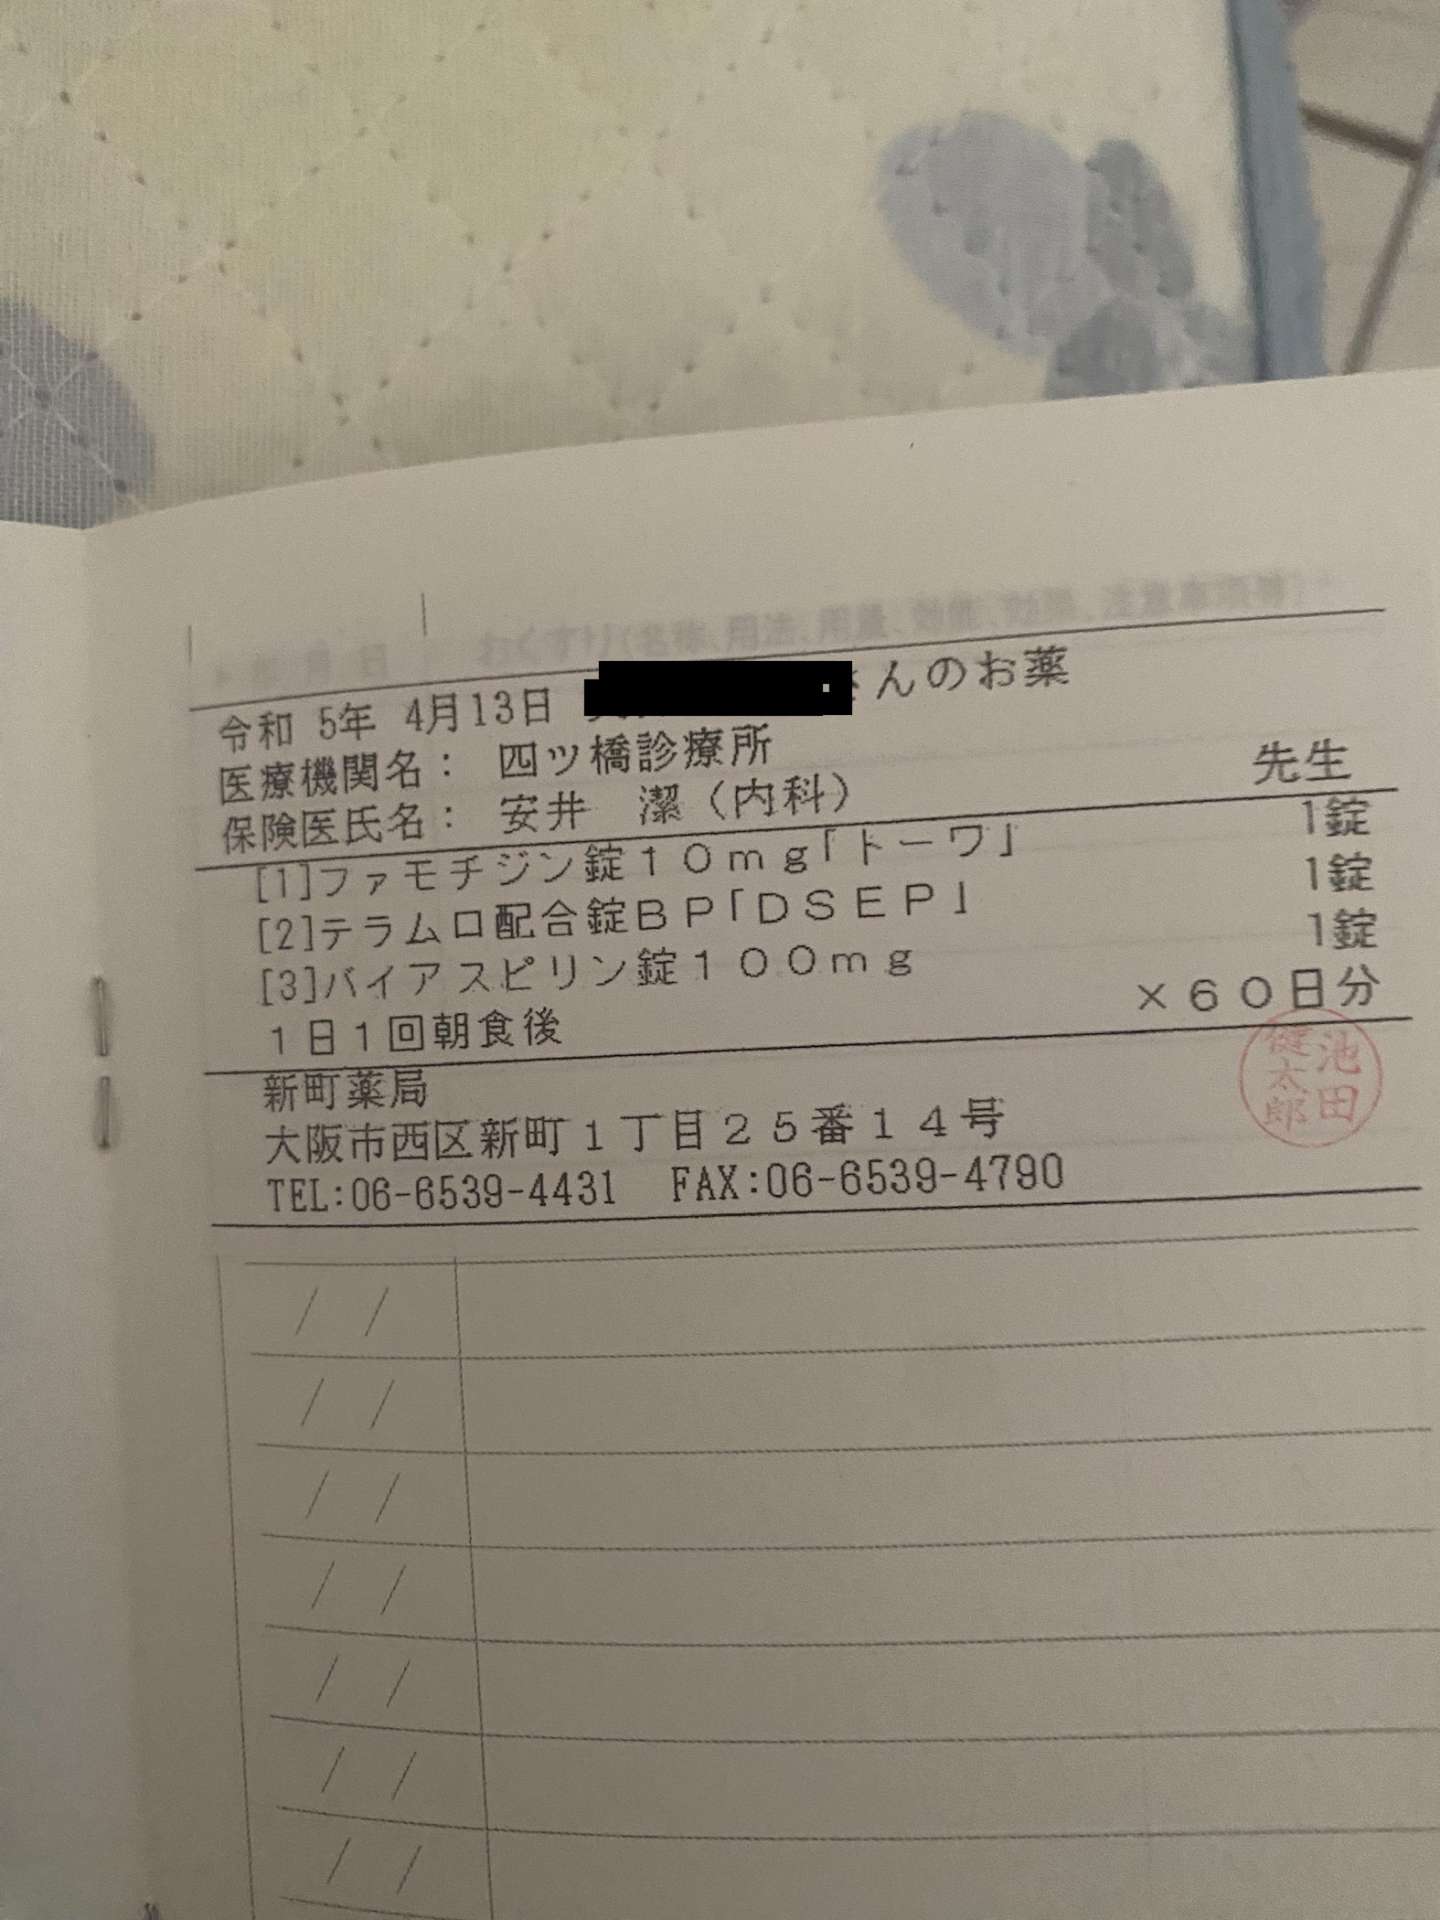 令和 5年 4月13日 さんのお薬
医療機関名： 四ツ橋診療所
保険医氏名： 安井　潔（内科） 先生
[1]ファモチジン錠１０ｍｇ「トーワ」 1錠
[2]テラムロ配合錠ＢＰ「ＤＳＥＰ」 1錠
[3]バイアスピリン錠１００ｍｇ 1錠
１日１回朝食後 ×６０日分
新町薬局
大阪市西区新町１丁目２５番１４号
TEL:06-6539-4431 FAX:06-6539-4790
池田
健太郎
/ /
/ /
/ /
/ /
/ /
/ /
/ /